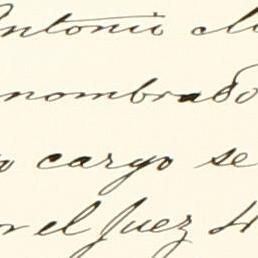 Antonio M
nombrado
o cargo se
or el Juez 4